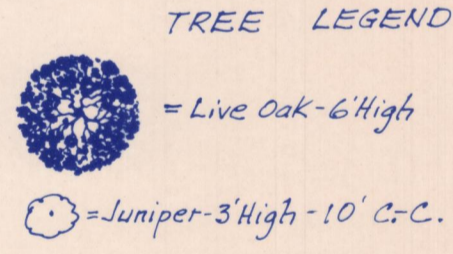 TREE LEGEND
= Live Oak - 6' High
= Juniper - 3' High - 10' C.-C.